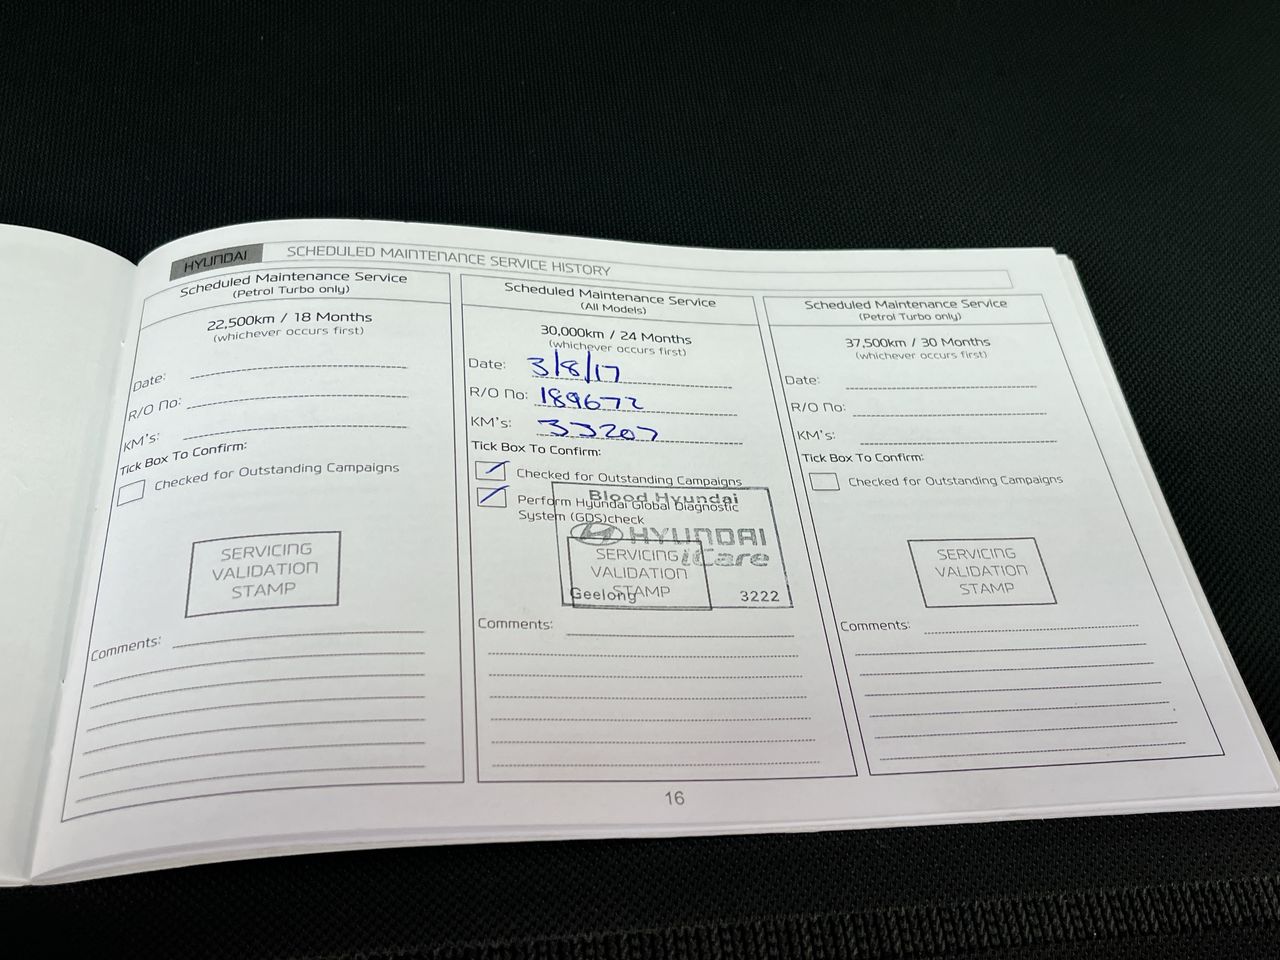 HYUNDAI SCHEDULED MAINTENANCE SERVICE HISTORY
Scheduled Maintenance Service
(Petrol Turbo only)
22,500km / 18 Months
(whichever occurs first)
Date:
R/O No:
KM's:
Tick Box To Confirm:
Checked for Outstanding Campaigns
SERVICING
VALIDATION
STAMP
Comments:
Scheduled Maintenance Service
(All Models)
30,000km / 24 Months
(whichever occurs first)
Date: 3/8/17
R/O No: 189672
KM's: 33207
Tick Box To Confirm:
Checked for Outstanding Campaigns
Perform Hyundai Global Diagnostic
System (GDS)check
Blood Hyundai
HYUNDAI
iCare
Geelong 3222
SERVICING
VALIDATION
STAMP
Comments:
Scheduled Maintenance Service
(Petrol Turbo only)
37,500km / 30 Months
(whichever occurs first)
Date:
R/O No:
KM's:
Tick Box To Confirm:
Checked for Outstanding Campaigns
SERVICING
VALIDATION
STAMP
Comments:
16